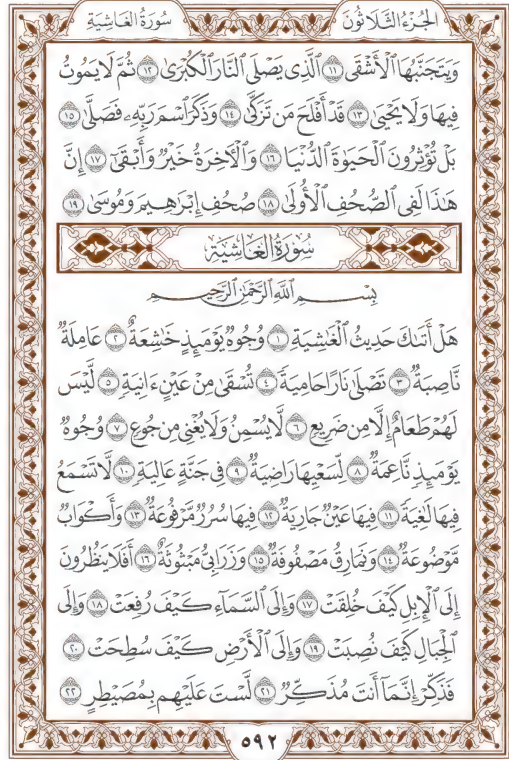 سُورَةُ الغَاشِيَةِ
الجُزْءُ الثَّلَاثُونَ
وَيَتَجَنَّبُهَا ٱلْأَشْقَى ١١ ٱلَّذِى يَصْلَى ٱلنَّارَ ٱلْكُبْرَىٰ ١٢ ثُمَّ لَا يَمُوتُ
فِيهَا وَلَا يَحْيَىٰ ١٣ قَدْ أَفْلَحَ مَن تَزَكَّىٰ ١٤ وَذَكَرَ ٱسْمَ رَبِّهِۦ فَصَلَّىٰ ١٥
بَلْ تُؤْثِرُونَ ٱلْحَيَوٰةَ ٱلدُّنْيَا ١٦ وَٱلْأَخِرَةُ خَيْرٌ وَأَبْقَىٰٓ ١٧ إِنَّ
هَٰذَا لَفِى ٱلصُّحُفِ ٱلْأُولَىٰ ١٨ صُحُفِ إِبْرَٰهِيمَ وَمُوسَىٰ ١٩
سُورَةُ الغَاشِيَةِ
بِسْمِ ٱللَّهِ ٱلرَّحْمَٰنِ ٱلرَّحِيمِ
هَلْ أَتَىٰكَ حَدِيثُ ٱلْغَٰشِيَةِ ١ وُجُوهٌ يَوْمَئِذٍ خَٰشِعَةٌ ٢ عَامِلَةٌ
نَّاصِبَةٌ ٣ تَصْلَىٰ نَارًا حَامِيَةً ٤ تُسْقَىٰ مِنْ عَيْنٍ ءَانِيَةٍ ٥ لَّيْسَ
لَهُمْ طَعَامٌ إِلَّا مِن ضَرِيعٍ ٦ لَّا يُسْمِنُ وَلَا يُغْنِى مِن جُوعٍ ٧ وُجُوهٌ
يَوْمَئِذٍ نَّاعِمَةٌ ٨ لِّسَعْيِهَا رَاضِيَةٌ ٩ فِى جَنَّةٍ عَالِيَةٍ ١٠ لَّا تَسْمَعُ
فِيهَا لَٰغِيَةً ١١ فِيهَا عَيْنٌ جَارِيَةٌ ١٢ فِيهَا سُرُرٌ مَّرْفُوعَةٌ ١٣ وَأَكْوَابٌ
مَّوْضُوعَةٌ ١٤ وَنَمَارِقُ مَصْفُوفَةٌ ١٥ وَزَرَابِىُّ مَبْثُوثَةٌ ١٦ أَفَلَا يَنظُرُونَ
إِلَى ٱلْإِبِلِ كَيْفَ خُلِقَتْ ١٧ وَإِلَى ٱلسَّمَآءِ كَيْفَ رُفِعَتْ ١٨ وَإِلَى
ٱلْجِبَالِ كَيْفَ نُصِبَتْ ١٩ وَإِلَى ٱلْأَرْضِ كَيْفَ سُطِحَتْ ٢٠
فَذَكِّرْ إِنَّمَآ أَنتَ مُذَكِّرٌ ٢١ لَّسْتَ عَلَيْهِم بِمُصَيْطِرٍ ٢٢
٥٩٢